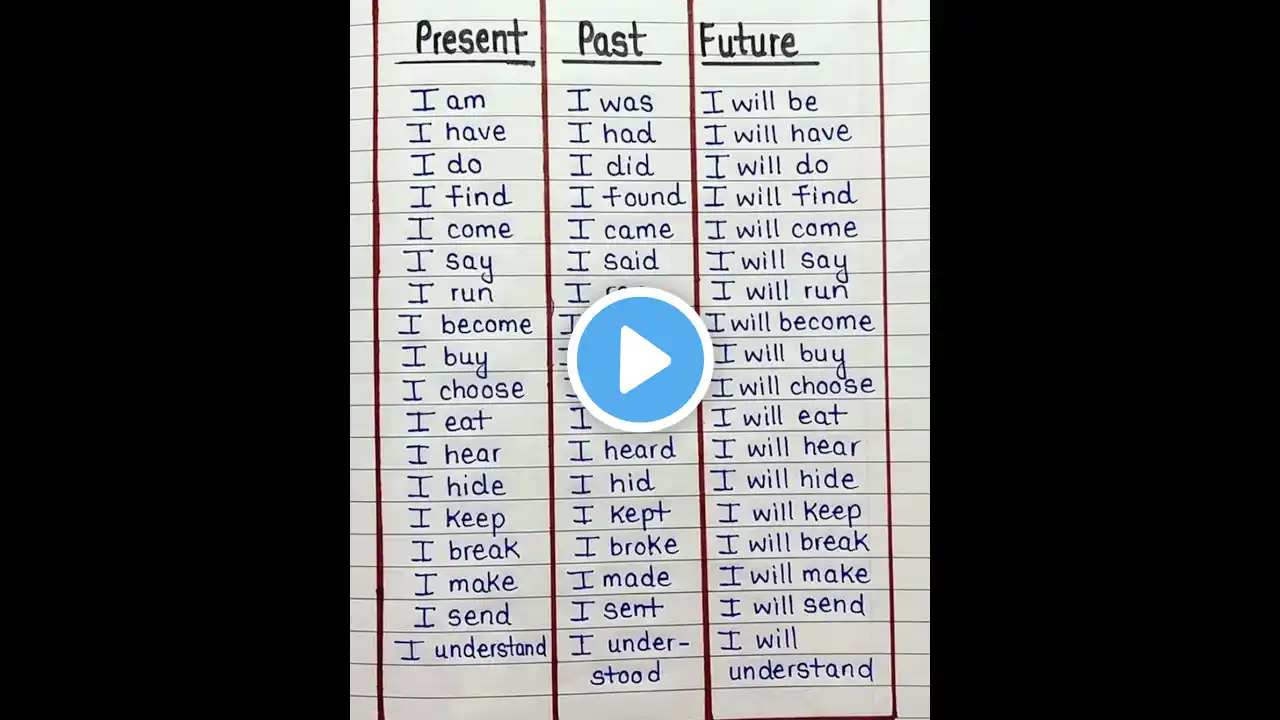 Present Past Future
I am I was I will be
I have I had I will have
I do I did I will do
I find I found I will find
I come I came I will come
I say I said I will say
I run I I will run
I become I I will become
I buy I I will buy
I choose I I will choose
I eat I I will eat
I hear I heard I will hear
I hide I hid I will hide
I keep I kept I will keep
I break I broke I will break
I make I made I will make
I send I sent I will send
I understand I under- I will
stood understand